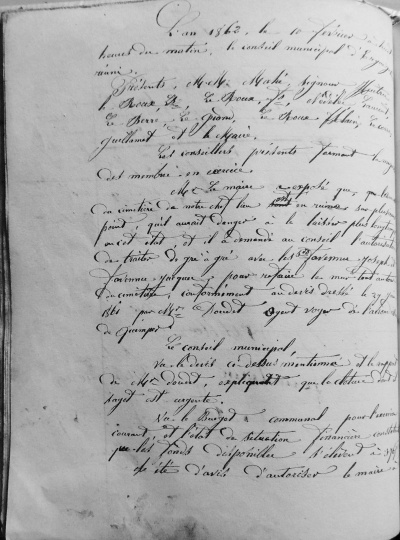 L'an 1862, le 10 février
heures du matin, le conseil municipal
réuni.
Présents, M.M. Mahé, Signour
L. Roux, Le Roux,
Le Berre, Le Grand, Le Roux
Guillamet et le Maire.
Les conseillers présents formant la
des membres en exercice
M. Le maire a exposé que
du cimetière de notre chef lieu sont en ruines sur plusieurs
point, qu'il aurait danger à le laisser plus longtemps
en cet état, et il a demandé au conseil l'autorisation
de traiter de gré à gré avec les Srs Farennue Joseph
Farennue Jacques, pour refaire le mur tout autour
du cimetière, conformément au devis dressé le 29
1861 par Mr agent voyer de
de Quimper
Le conseil municipal,
Vu le devis ci-dessus mentionné et le rapport
de Mr expliquant que la clôture dont il
s'agit est urgente.
Vu le Budget communal pour l'exercice
courant et l'état de situation financière constatant
que les fonds disponibles s'élèvent à
a été d'avis d'autoriser le maire à